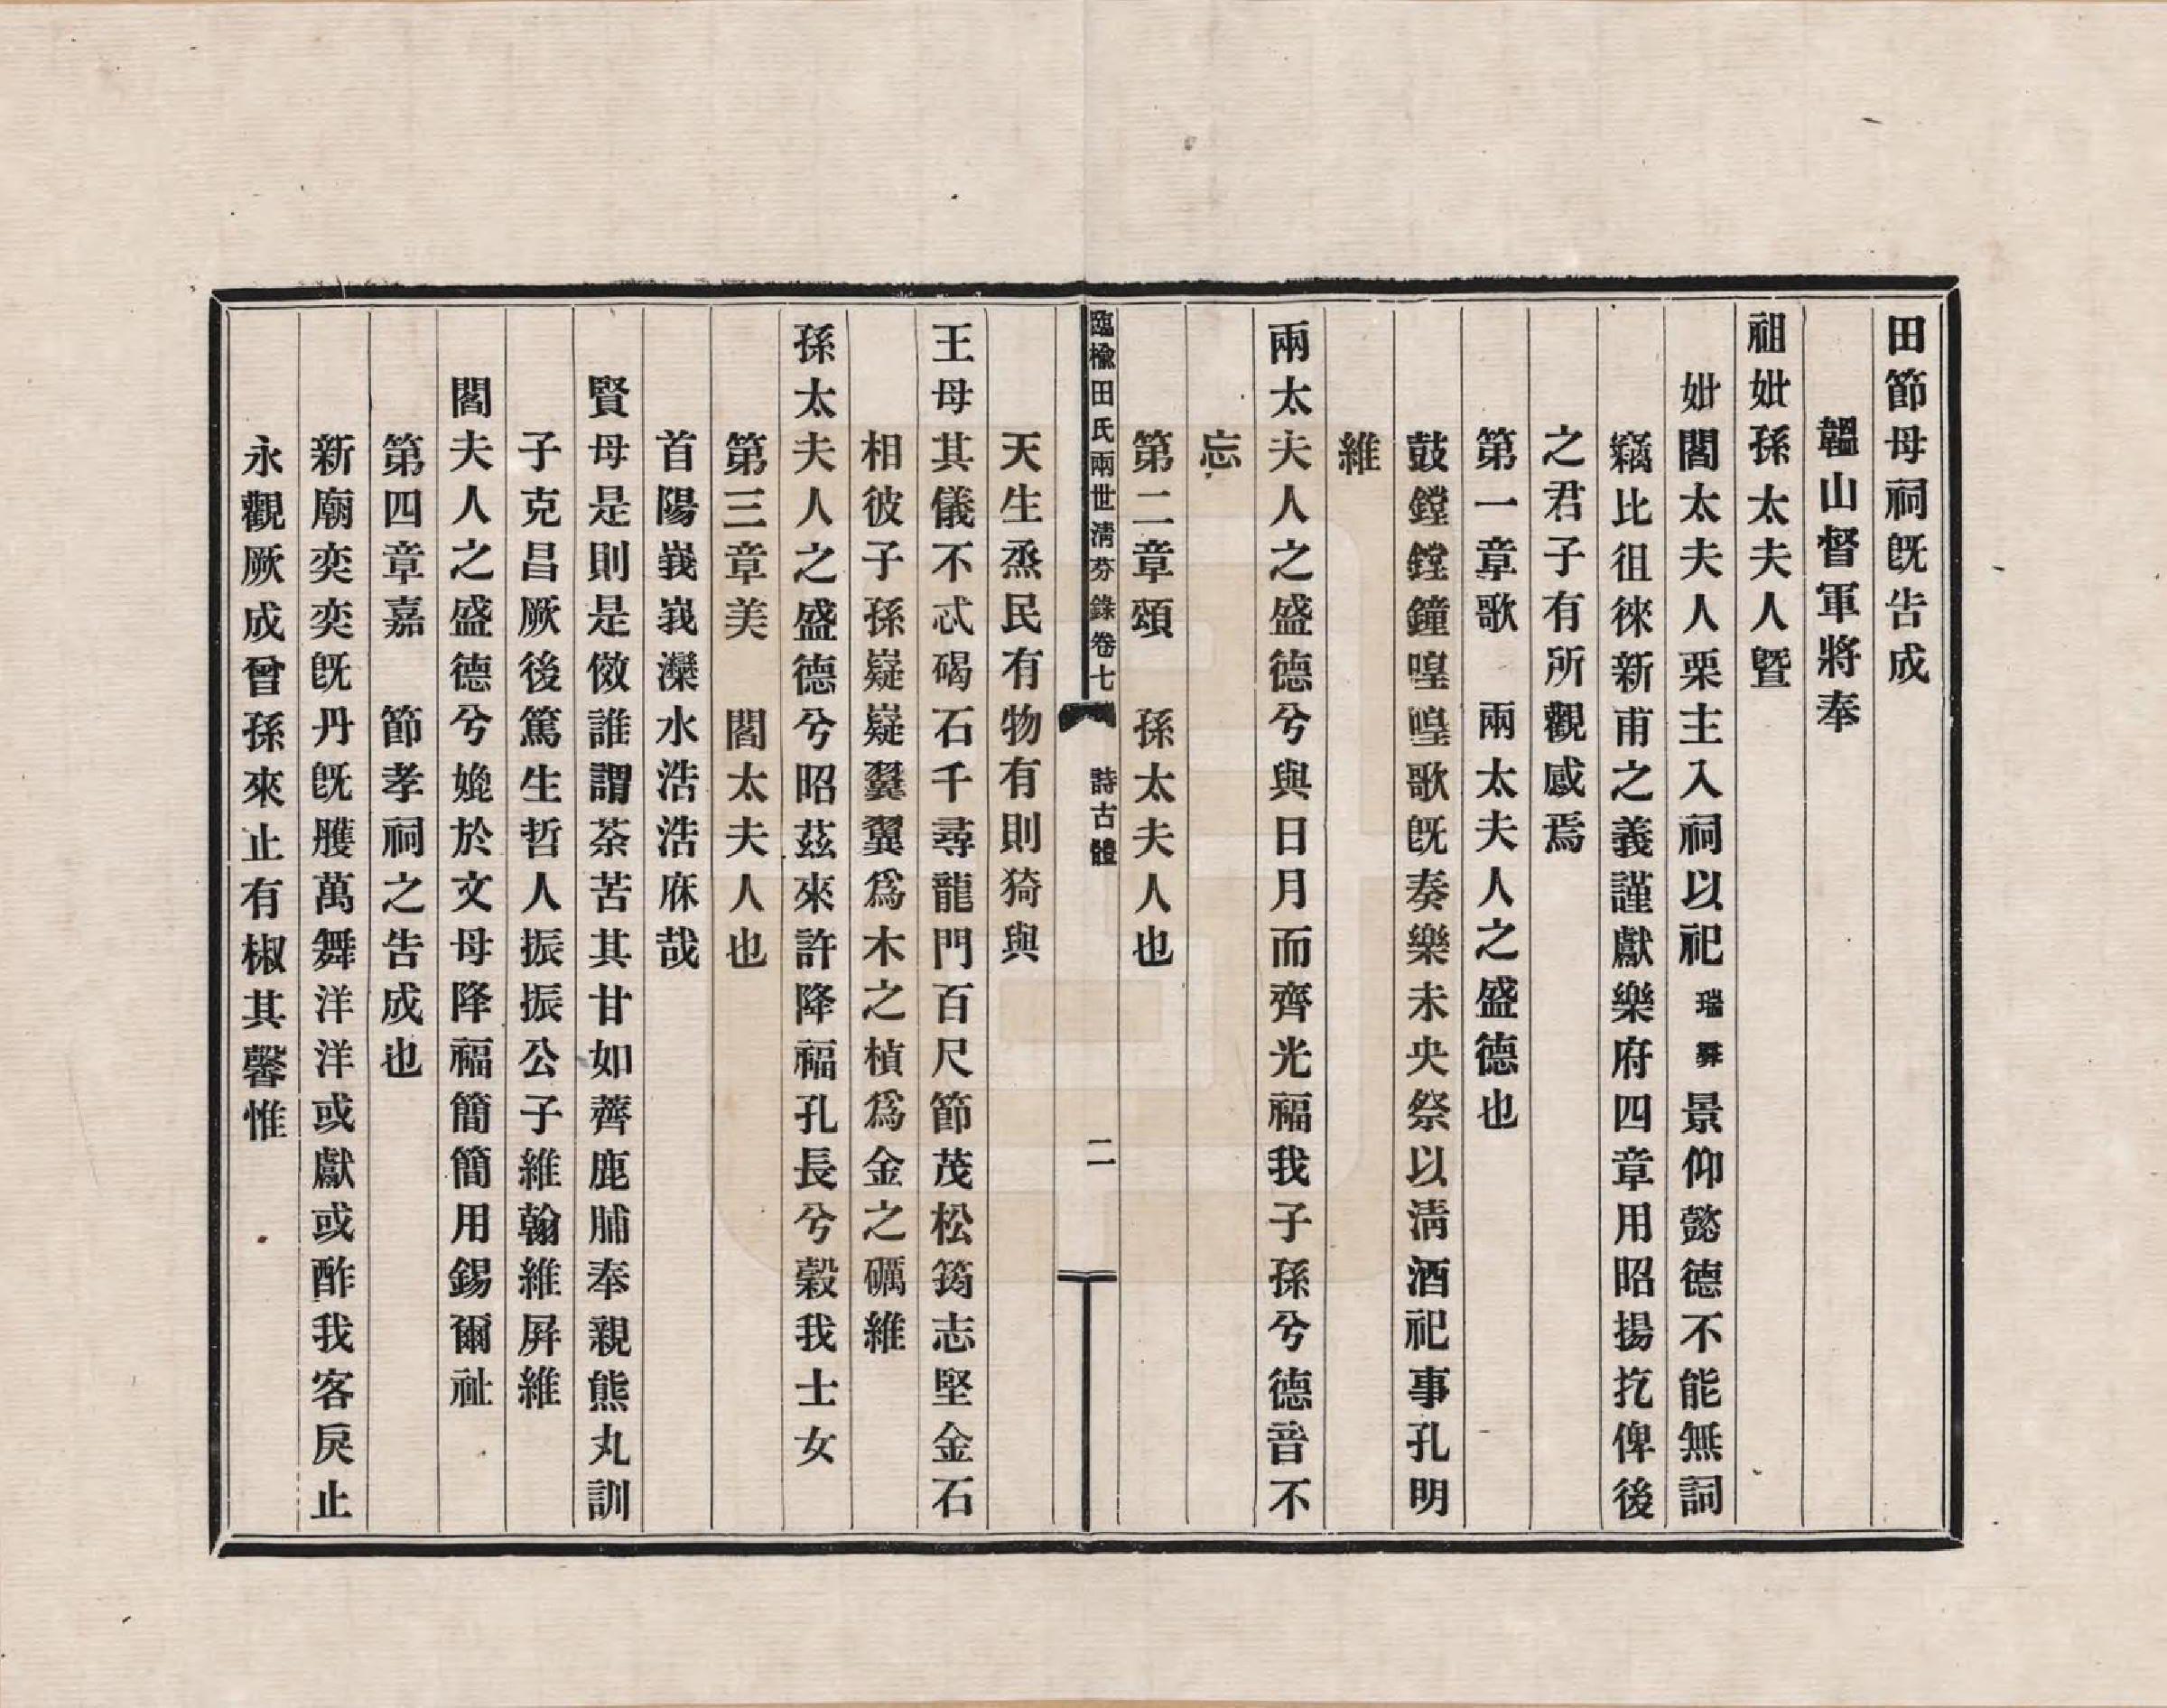 田節母祠旣告成
韞山督軍將奉
祖妣孫太夫人暨
妣閻太夫人栗主入祠以祀瑞彝景仰懿德不能無詞
竊比徂徠新甫之義謹獻樂府四章用昭揚扢俾後
之君子有所觀感焉
第一章歌　兩太夫人之盛德也
鼓鏜鏜鐘喤喤歌旣奏樂未央祭以淸酒祀事孔明
維
兩太夫人之盛德兮與日月而齊光福我子孫兮德音不
忘
第二章頌　孫太夫人也
臨楡田氏兩世淸芬錄卷七　詩古體　二
天生烝民有物有則猗與
王母其儀不忒碣石千尋龍門百尺節茂松筠志堅金石
相彼子孫嶷嶷翼翼爲木之楨爲金之礪維
孫太夫人之盛德兮昭茲來許降福孔長兮穀我士女
第三章美　閻太夫人也
首陽峩峩灤水浩浩庥哉
賢母是則是傚誰謂荼苦其甘如薺鹿脯奉親熊丸訓
子克昌厥後篤生哲人振振公子維翰維屛維
閻夫人之盛德兮媲於文母降福簡簡用錫爾祉
第四章嘉　節孝祠之告成也
新廟奕奕旣丹旣雘萬舞洋洋或獻或酢我客戾止
永觀厥成曾孫來止有椒其馨惟